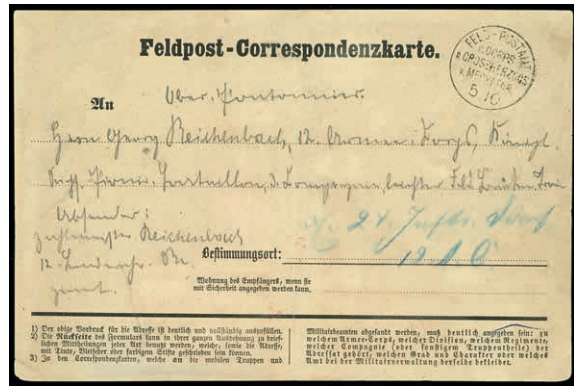 Feldpost-Correspondenzkarte.
FELD-POSTAMT
CORPS
GROSSHERZOGS
v. MECKLBG
5 10
An Ober-Pontonnier
Herrn Georg Reichenbach, 12. Armee-Corps, Königl.
Sächs. Pionir-Bataillon, 3. Compagnie, leichter Feld Brücken Train
Absender:
Reichenbach
12. Landwehr
Bestimmungsort:
12. A. C.
Wohnung des Empfängers, wenn sie
mit Sicherheit angegeben werden kann.
1) Der obige Vordruck für die Adresse ist deutlich und vollständig auszufüllen.
2) Die Rückseite des Formulars kann in ihrer ganzen Ausdehnung zu brief-
lichen Mittheilungen jeder Art benutzt werden, welche, sowie die Adresse,
mit Tinte, Bleifeder oder farbigem Stifte geschrieben sein können.
3) In den Correspondenzkarten, welche an die mobilen Truppen und
Militairbeamten abgesandt werden, muß deutlich angegeben sein: zu
welchem Armee-Corps, welcher Division, welchem Regimente,
welcher Compagnie (oder sonstigem Truppentheile) der
Adressat gehört, welchen Grad und Charakter oder welches
Amt bei der Militairverwaltung derselbe bekleidet.